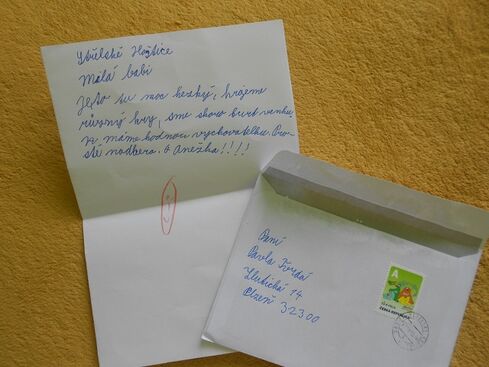 Střelské Hoštice
Milá babi
Je to tu moc hezký, hrajeme
různý hry, sme skoro furt venku,
máme hodnou vychovatelku. Pro-
stě nádhera. Anežka!!!!
Paní
Pavla Tvrdá
14
Plzeň 32300
A
ČESKÁ REPUBLIKA